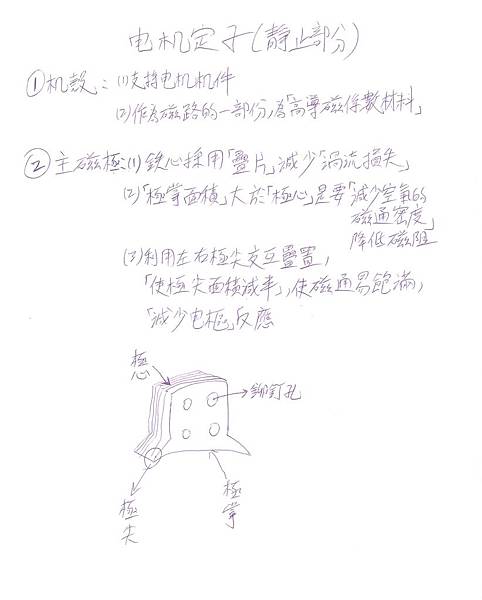 电机定子(靜止部分)
①机殼:(1)支持电机机件
(2)作為磁路的一部份,為「高導磁係數材料」
②主磁極(1)鉄心採用「疊片」減少「渦流損失」
(2)「極掌面積」大於「極心」是要「減少空氣的
磁通密度」
降低磁阻
(3)利用左右極尖交互疊置,
「使極尖面積減半」,使磁通易飽滿,
「減少电樞」反應
極心
鉚釘孔
極尖
極掌